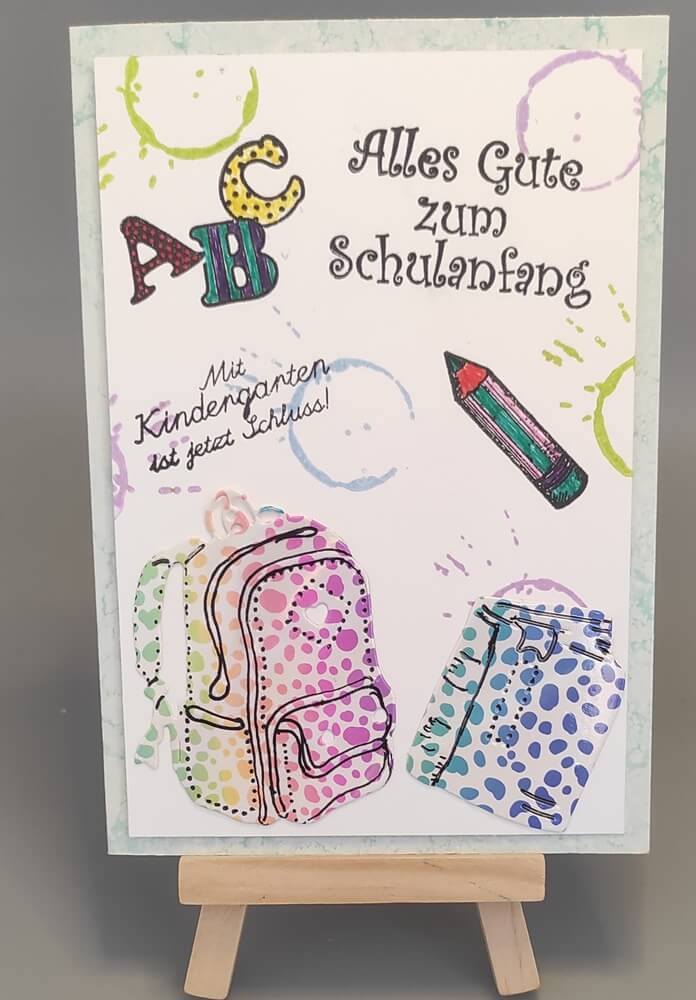 ABC
Alles Gute
zum
Schulanfang
Mit
Kindergarten
ist jetzt Schluss!